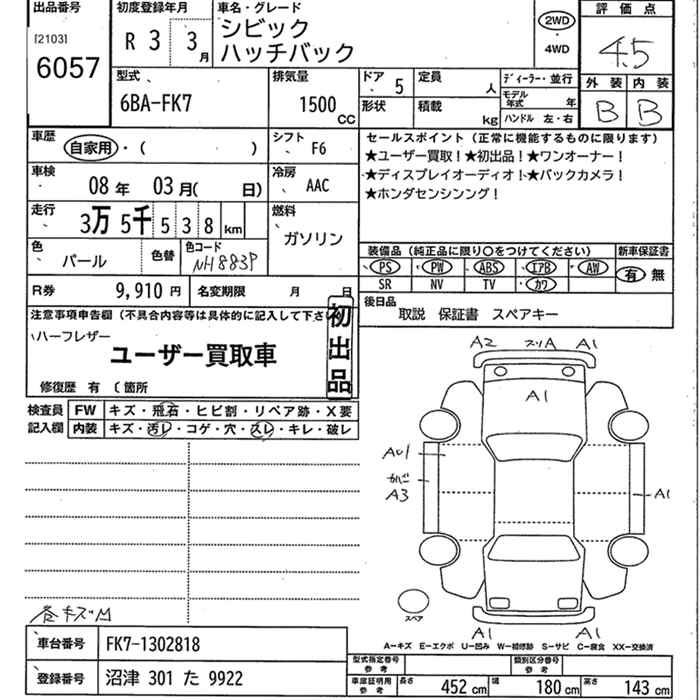 出品番号
[2103]
6057
初度登録年月
R 3 3月
車名・グレード
シビック
ハッチバック
2WD
4WD
評価点
4.5
外装 内装
B B
型式
6BA-FK7
排気量
1500 CC
ドア 5
形状
定員 人
積載 kg
ディーラー・並行
モデル年式 年
ハンドル 左・右
車歴 自家用・( )
シフト F6
車検 08年 03月( 日)
冷房 AAC
走行 3万5千538km
燃料 ガソリン
色 パール
色替
色コード NH883P
R券 9,910円
名変期限 月 日
セールスポイント(正常に機能するものに限ります)
★ユーザー買取!★初出品!★ワンオーナー!
★ディスプレイオーディオ!★バックカメラ!
★ホンダセンシンング!
装備品(純正品に限り○をつけてください)
新車保証書
PS PW ABS エアB AW
SR NV TV カワ
有 無
後日品
取説 保証書 スペアキー
注意事項申告欄(不具合内容等は具体的に記入して下さい
ハーフレザー
ユーザー買取車
初出品
修復歴 有 ( 箇所
検査員記入欄
FW キズ・飛石・ヒビ割・リペア跡・X要
内装 キズ・汚レ・コゲ・穴・スレ・キレ・破レ
A2 スリA A1
A1
AU1
A3
A1
スペア
A1 A1
A-キズ E-エクボ U-凹み W-補修跡 S-サビ C-腐食 XX-交換済
車台番号 FK7-1302818
登録番号 沼津 301 た 9922
型式指定番号 参考
類別区分番号 参考
車庫証明用 参考
長さ 452cm 幅 180cm 高さ 143cm